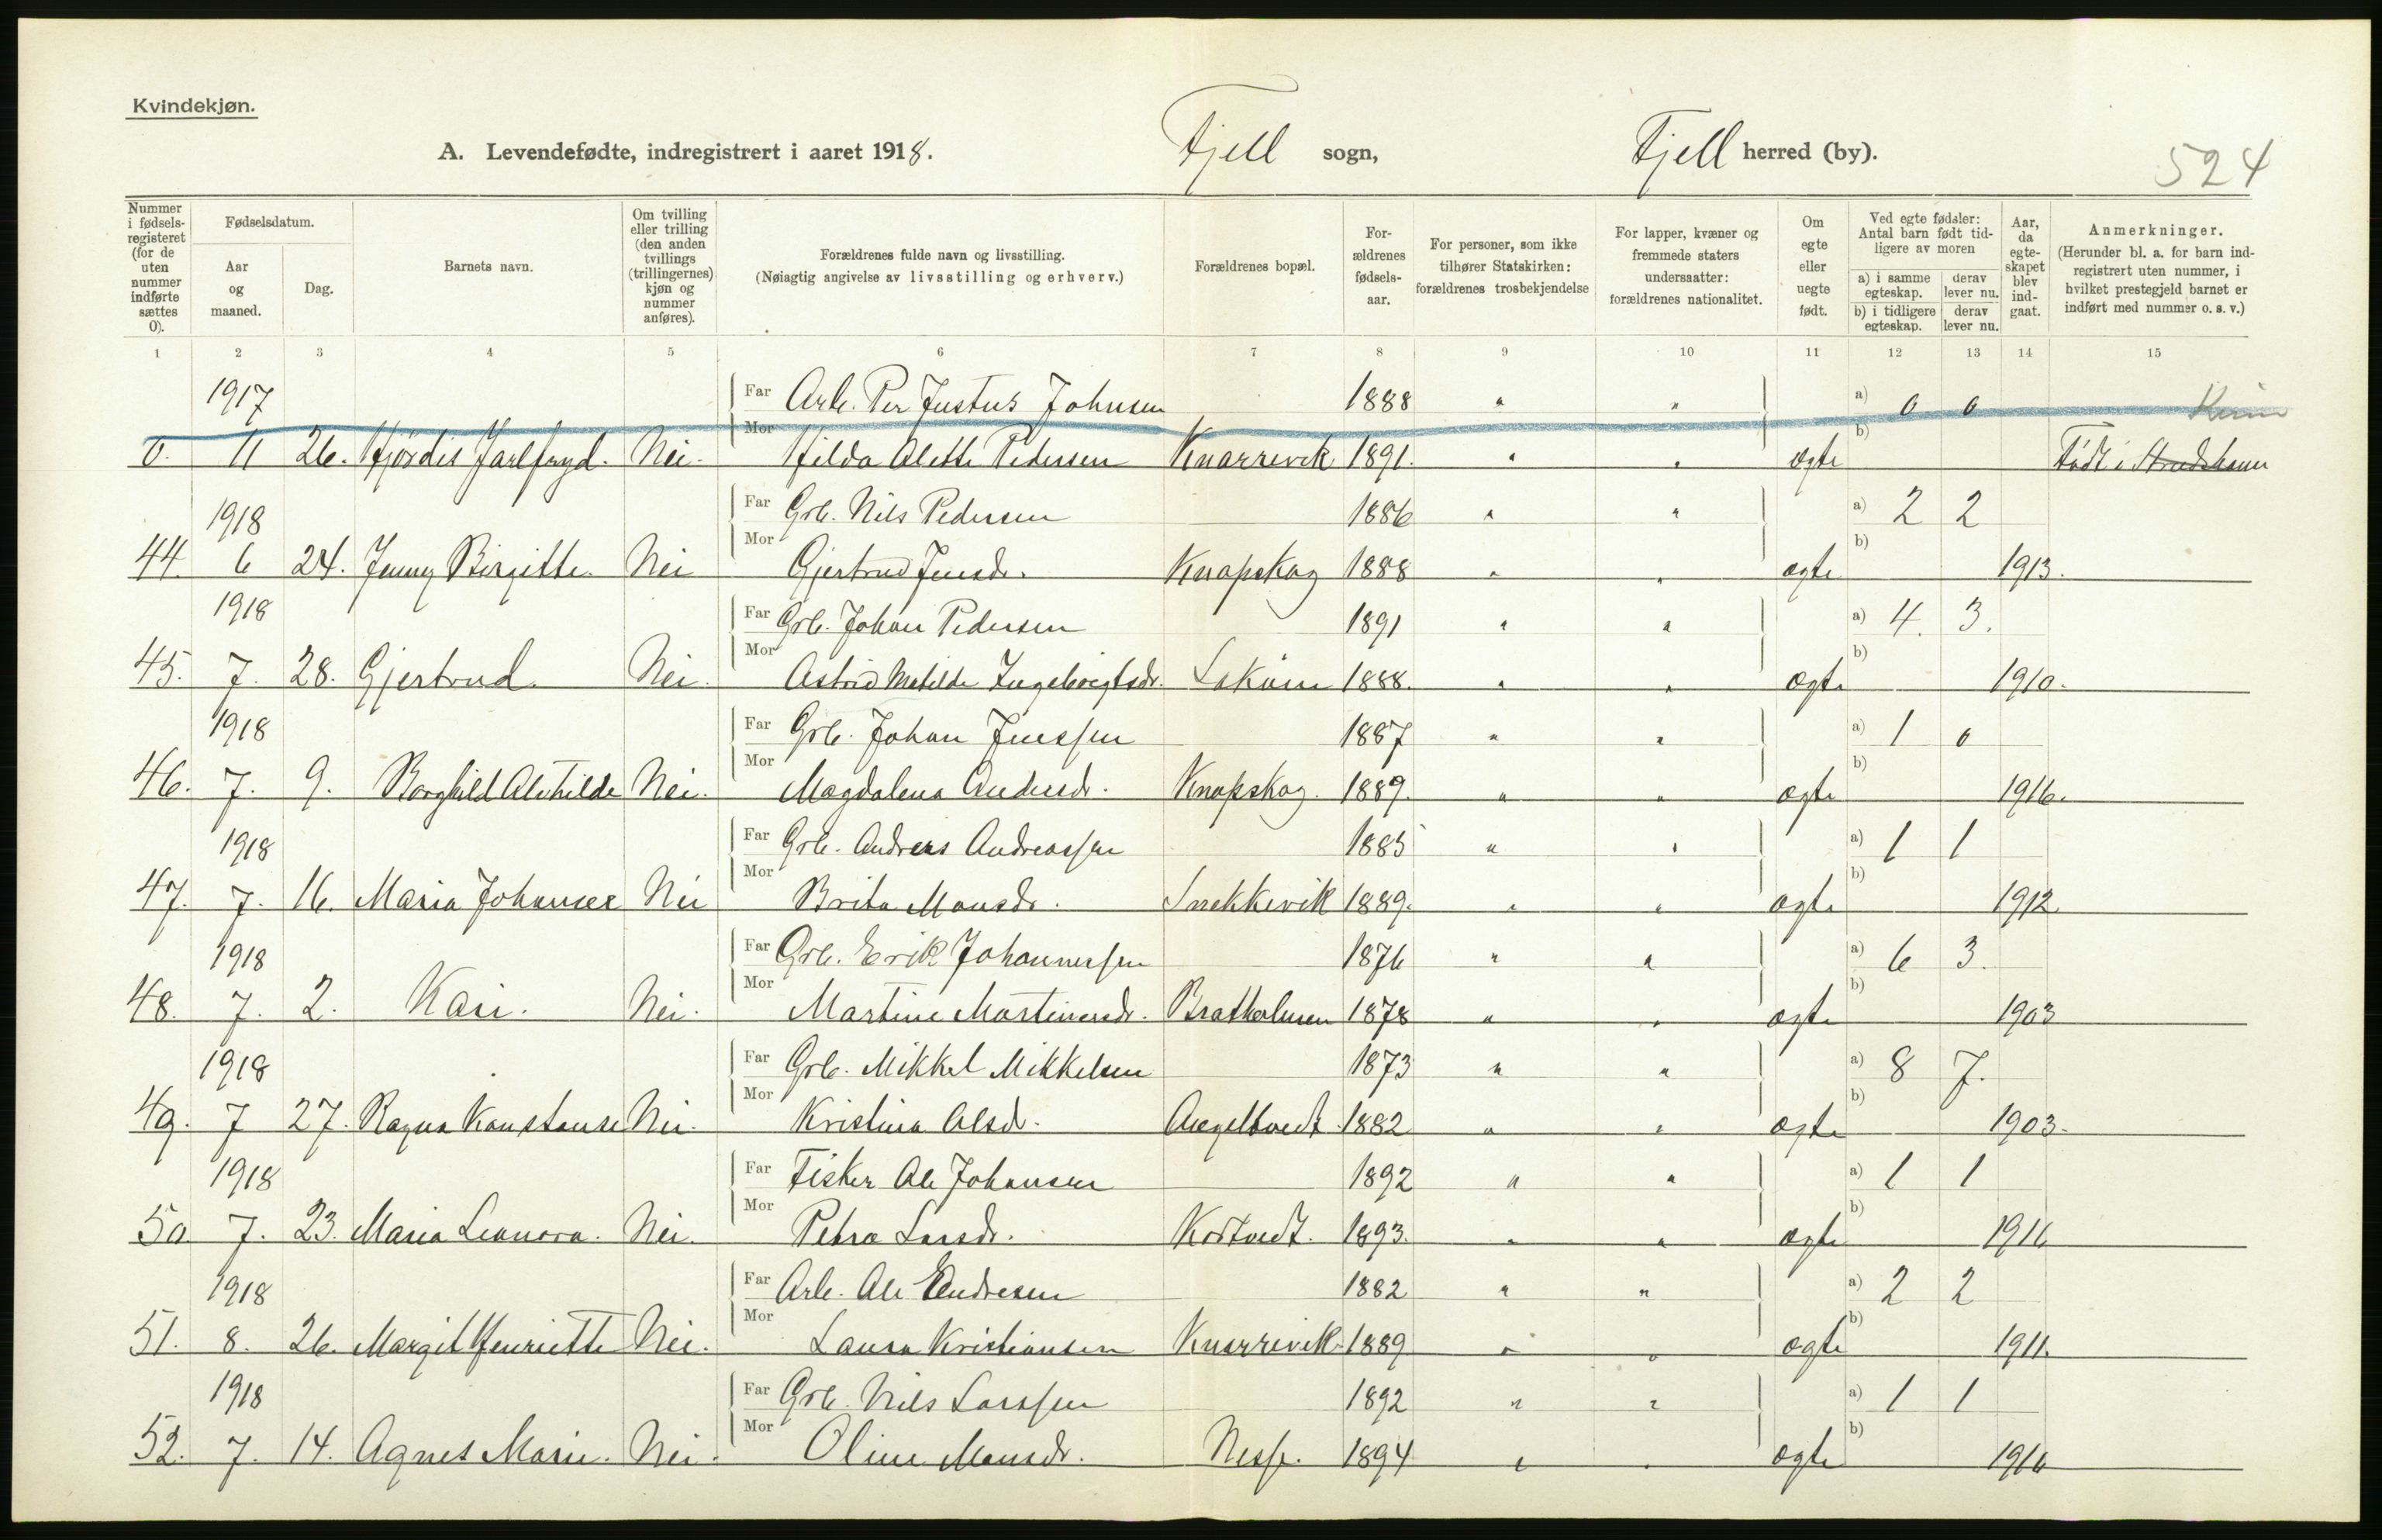 Kvindekjøn.
A. Levendefødte, indregistrert i aaret 1918. Fjell sogn, Fjell herred (by). 524
Nummer i fødsels-registeret (for de uten nummer indførte sættes 0).
Fødselsdatum.
Aar og maaned.
Dag.
Barnets navn.
Om tvilling eller trilling (den anden tvillings (trillingernes) kjøn og nummer anføres).
Forældrenes fulde navn og livsstilling.
(Nøiagtig angivelse av livsstilling og erhverv.)
Forældrenes bopæl.
For-ældrenes fødsels-aar.
For personer, som ikke tilhører Statskirken: forældrenes trosbekjendelse
For lapper, kvæner og fremmede staters undersaatter: forældrenes nationalitet.
Om egte eller uegte født.
Ved egte fødsler: Antal barn født tid-ligere av moren
a) i samme egteskap. derav lever nu.
b) i tidligere egteskap. derav lever nu.
Aar, da egte-skapet blev ind-gaat.
Anmerkninger.
(Herunder bl. a. for barn ind-registrert uten nummer, i hvilket prestegjeld barnet er indført med nummer o. s. v.)
1 2 3 4 5 6 7 8 9 10 11 12 13 14 15
1917 Far Arb. Per Justus Johnsen 1888 " " a) 0 0
0. 11 26. Hjørdis Jarlfryd. Nei. Mor Hilda Alette Pedersen Knarrevik 1891. " " egte b) Født i
1918 Far Grb. Nils Pedersen 1886 " " a) 2 2
44. 6 24. Jenny Birgitte. Nei Mor Gjertrud Jensdr. Knapskog 1888 " " egte b) 1913.
1918 Far Grb. Johan Pedersen 1891 " " a) 4. 3.
45. 7. 28. Gjertrud. Nei. Mor Astrid Matilde Ingebrigtsdr. 1888. " " egte b) 1910.
1918 Far Grb. Johan Jenssen 1887 " " a) 1 0
46. 7. 9. Borghild Alvhilde Nei. Mor Magdalena Andersdr. Knapskog. 1889. " " egte b) 1916.
1918 Far Grb. Andreas Andreassen 1885 " " a) 1 1
47. 7. 16. Maria Johansee Nei Mor Brita Monsdr. Snekkevik 1889. " " egte b) 1912.
1918 Far Grb. Erik Johannessen 1876 " " a) 6 3.
48. 7. 2. Kari. Nei. Mor Martine Martinusdr. Bratholmen 1878 " " egte b) 1903
1918 Far Grb. Mikkel Mikkelsen 1873 " " a) 8 7.
49. 7 27. Ragna Konstanse Nei. Mor Kristina Olsdr. Angeltvedt 1882 " " egte b) 1903.
1918 Far Fisker Ole Johansen 1892 " " a) 1 1
50. 7. 23. Maria Leonora. Nei. Mor Petra Larsdr. Kortvedt. 1893. " " egte b) 1916
1918 Far Arb. Ole Endresen 1882 " " a) 2 2
51. 8. 26. Margit Henriette Nei. Mor Laura Kristiansen Knarrevik 1889 " " egte b) 1911.
1918 Far Grb. Nils Larssen 1892 " " a) 1 1
52. 7. 14. Agnes Marie. Nei. Mor Oline Monsdr. 1894 " " egte b) 1916